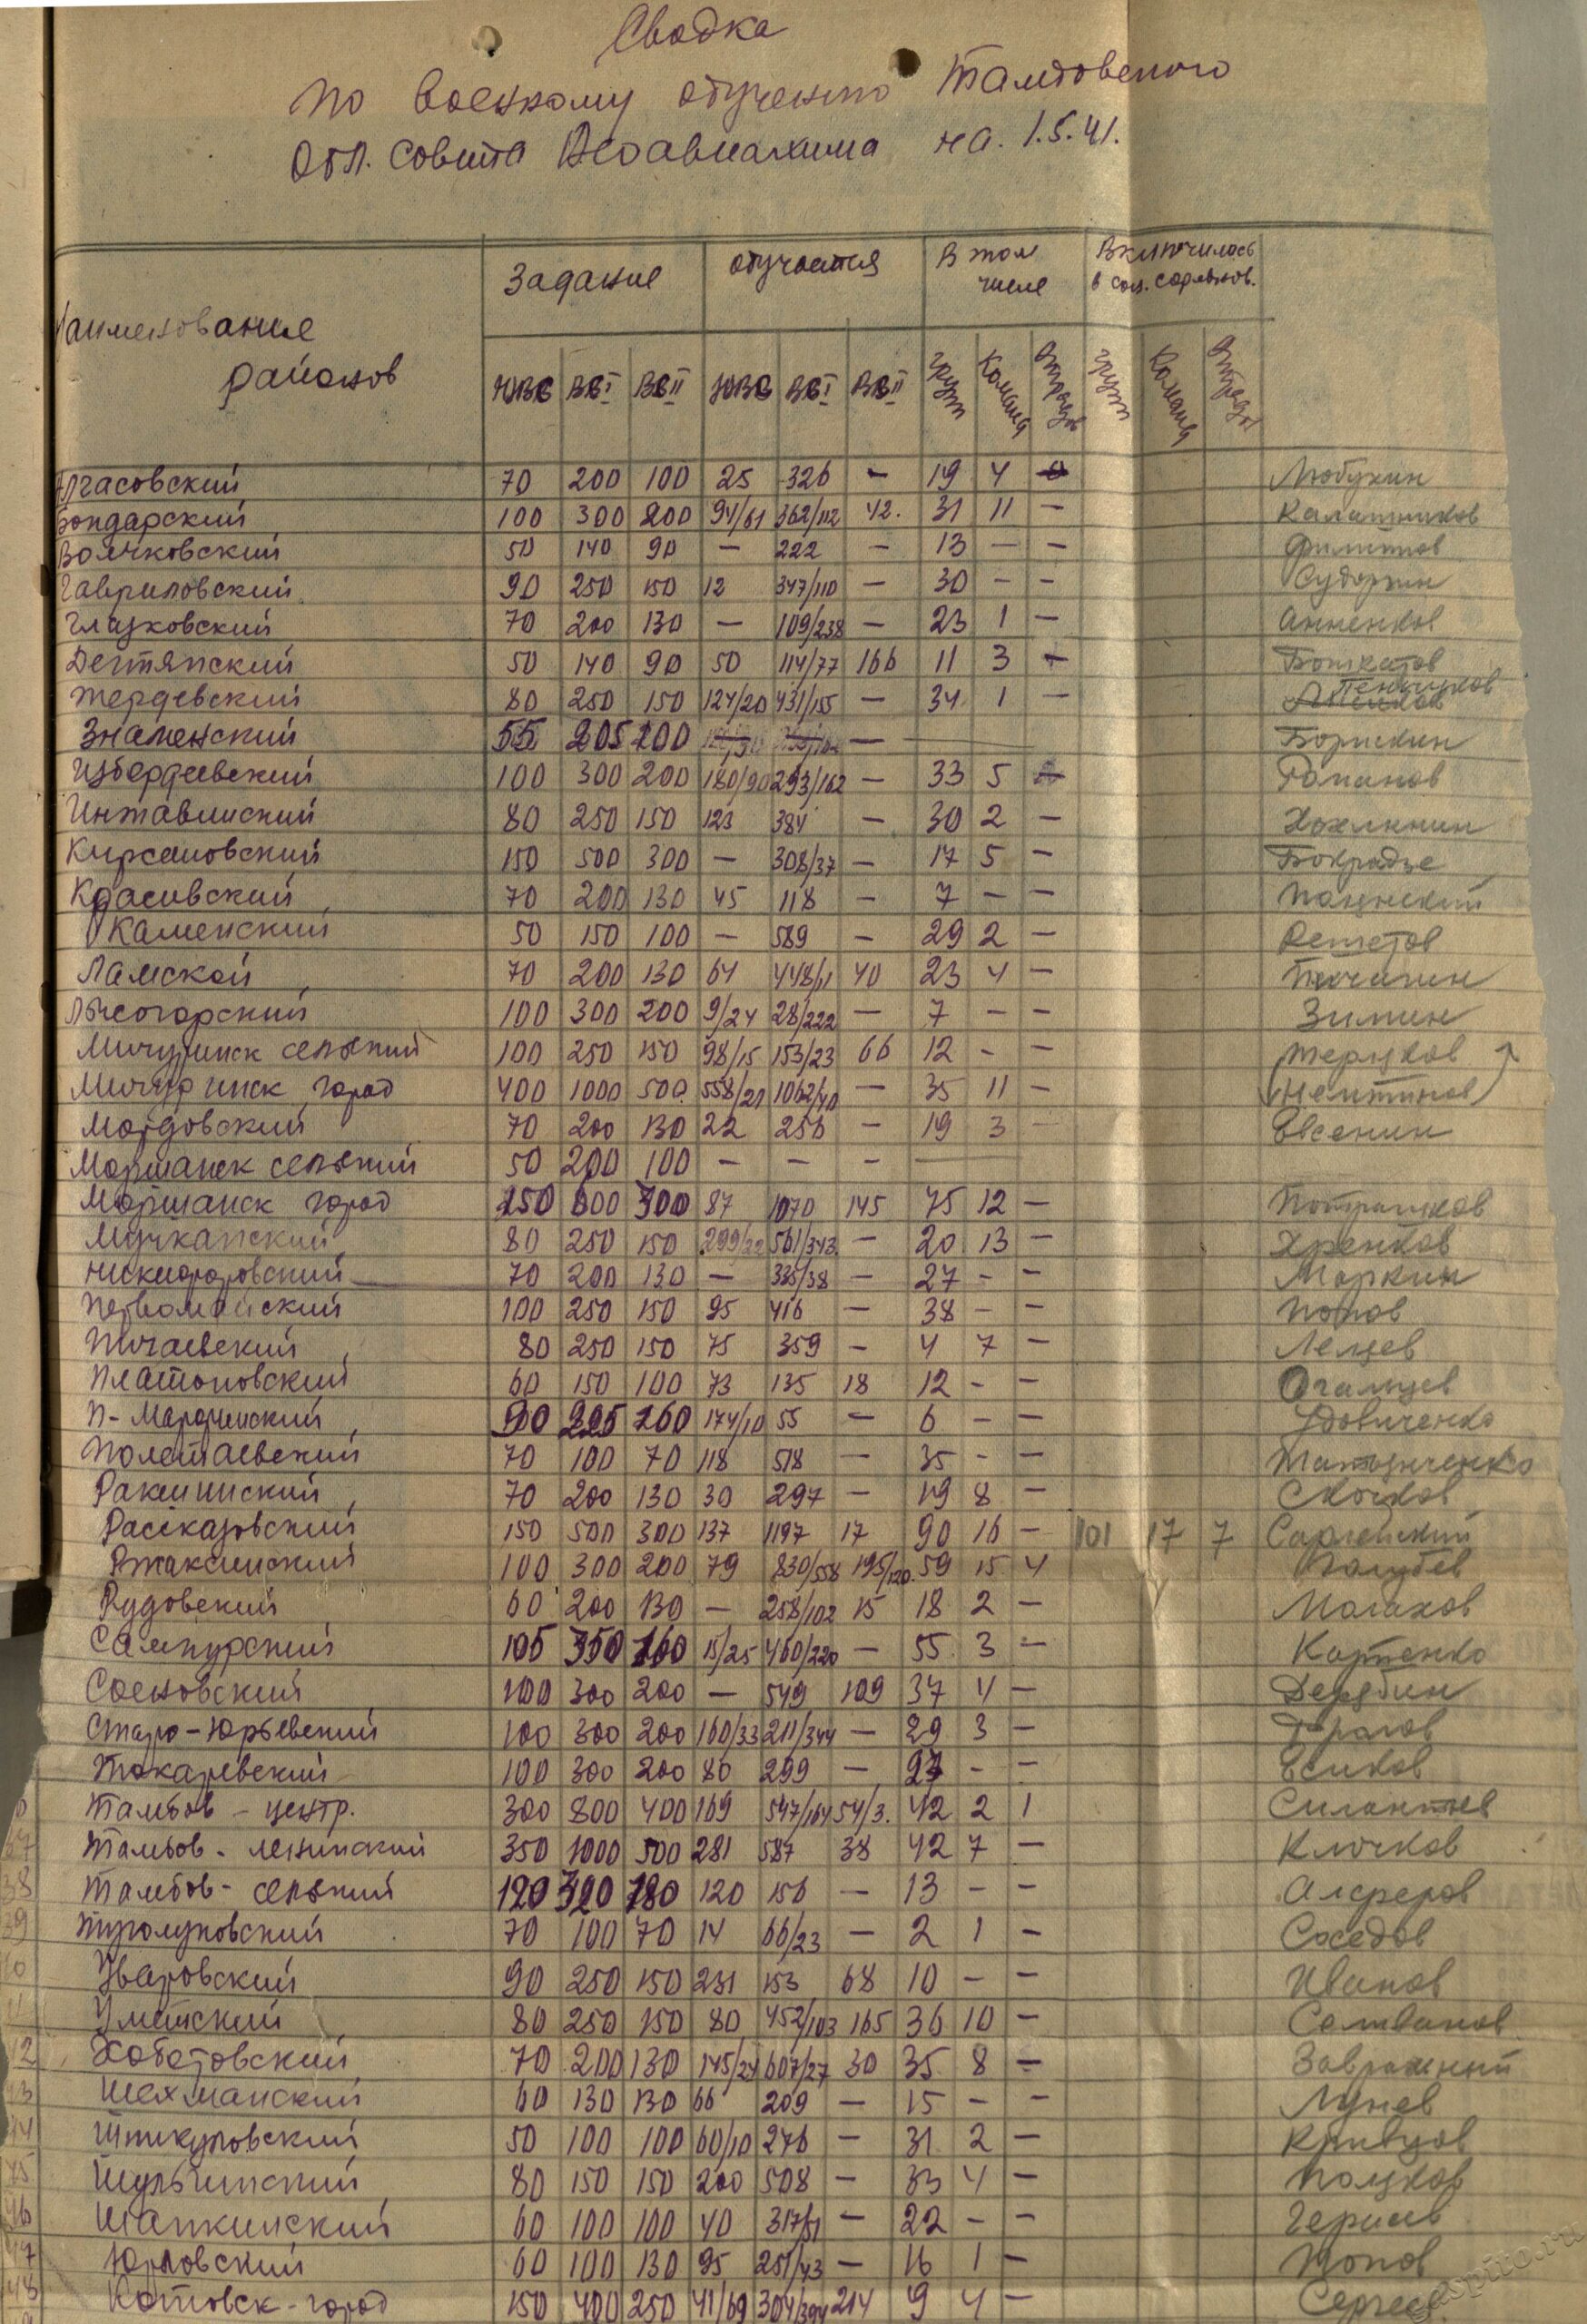 Сводка
по военному обучению Тамбовского
Обл. Совета Осоавиахима на 1.5.41.
Наименование районов Задание обучается В том числе Включилось в соц. соревнов.
ЮВС ВВI ВВII ЮВС ВВI ВВII групп Команд отрядов групп Команд отрядов
Алгасовский 70 200 100 25 326 — 19 4
Бондарский 100 300 200 94/61 362/112 42. 31 11 — Калашников
Волчковский 50 140 90 — 222 — 13 — — Филиппов
Гавриловский 90 250 150 12 347/110 — 30 — —
Глазковский 70 200 130 — 109/238 — 23 1 — Анненков
Дегтянский 50 140 90 50 114/77 166 11 3 —
Жердевский 80 250 150 124/20 431/155 — 34 1 —
Знаменский 55 205 200 —
Избердеевский 100 300 200 180/90 293/162 — 33 5
Инжавинский 80 250 150 123 384 — 30 2 —
Кирсановский 150 500 300 — 308/37 — 17 5 —
Красивский 70 200 130 45 118 — 7 — —
Каменский 50 150 100 — 589 — 29 2 — Решетов
Ламской 70 200 130 64 448/11 40 23 4 —
Лысогорский 100 300 200 9/24 28/222 — 7 — — Зимин
Мичуринск сельский 100 250 150 98/15 153/23 66 12 - —
Мичуринск город 400 1000 500 558/21 1062/40 — 35 11 —
Мордовский 70 200 130 22 256 — 19 3 — Евсенин
Моршанск сельский 50 200 100 — — —
Моршанск город 250 600 300 87 1070 145 75 12 —
Мучкапский 80 250 150 299/22 561/343 — 20 13 — Хренков
Никифоровский 70 200 130 — 335/38 — 27 - — Моркин
Первомайский 100 250 150 95 416 — 38 - — Попов
Пичаевский 80 250 150 75 359 — 4 7 —
Платоновский 60 150 100 73 135 18 12 - —
П-Марфинский 90 225 160 174/10 55 — 6 — — Удовиченко
Полетаевский 70 100 70 118 518 — 35 - —
Ракшинский 70 200 130 30 297 — 19 8 —
Рассказовский 150 500 300 137 1197 17 90 16 — 101 17 7
Ржаксинский 100 300 200 79 830/558 195/120. 59 15 4
Рудовский 60 200 130 — 258/102 15 18 2 —
Сампурский 105 350 160 15/25 460/220 — 55 3 —
Сосновский 100 300 200 — 549 109 37 4 — Дерябин
Старо-Юрьевский 100 300 200 160/33 211/344 — 29 3 —
Токаревский 100 300 200 80 299 — 27 - — Есиков
Тамбов - центр. 300 800 400 169 547/164 54/3. 42 2 1 Силантьев
37 Тамбов - Ленинский 350 1000 500 281 587 38 42 7 — Клочков
38 Тамбов - сельский 120 320 180 120 156 — 13 - — Алферов
39 Туголуковский 70 100 70 14 66/23 — 2 1 — Соседов
40 Уваровский 90 250 150 231 153 68 10 — — Иванов
Уметский 80 250 150 80 452/103 165 36 10 — Селиванов
42 Хоботовский 70 200 130 145/24 607/27 30 35 8 — Завражный
43 Шехманский 60 130 130 66 209 — 15 - — Лунев
44 Шпикуловский 50 100 100 60/10 276 — 31 2 — Кривцов
45 Шульгинский 80 150 150 200 508 — 33 4 —
46 Шапкинский 60 100 100 40 317/51 — 22 - —
47 Юрловский 60 100 130 95 251/43 — 16 1 — Попов
48 Котовск - город 150 400 250 41/69 304/394 214 9 4 — Сергеев